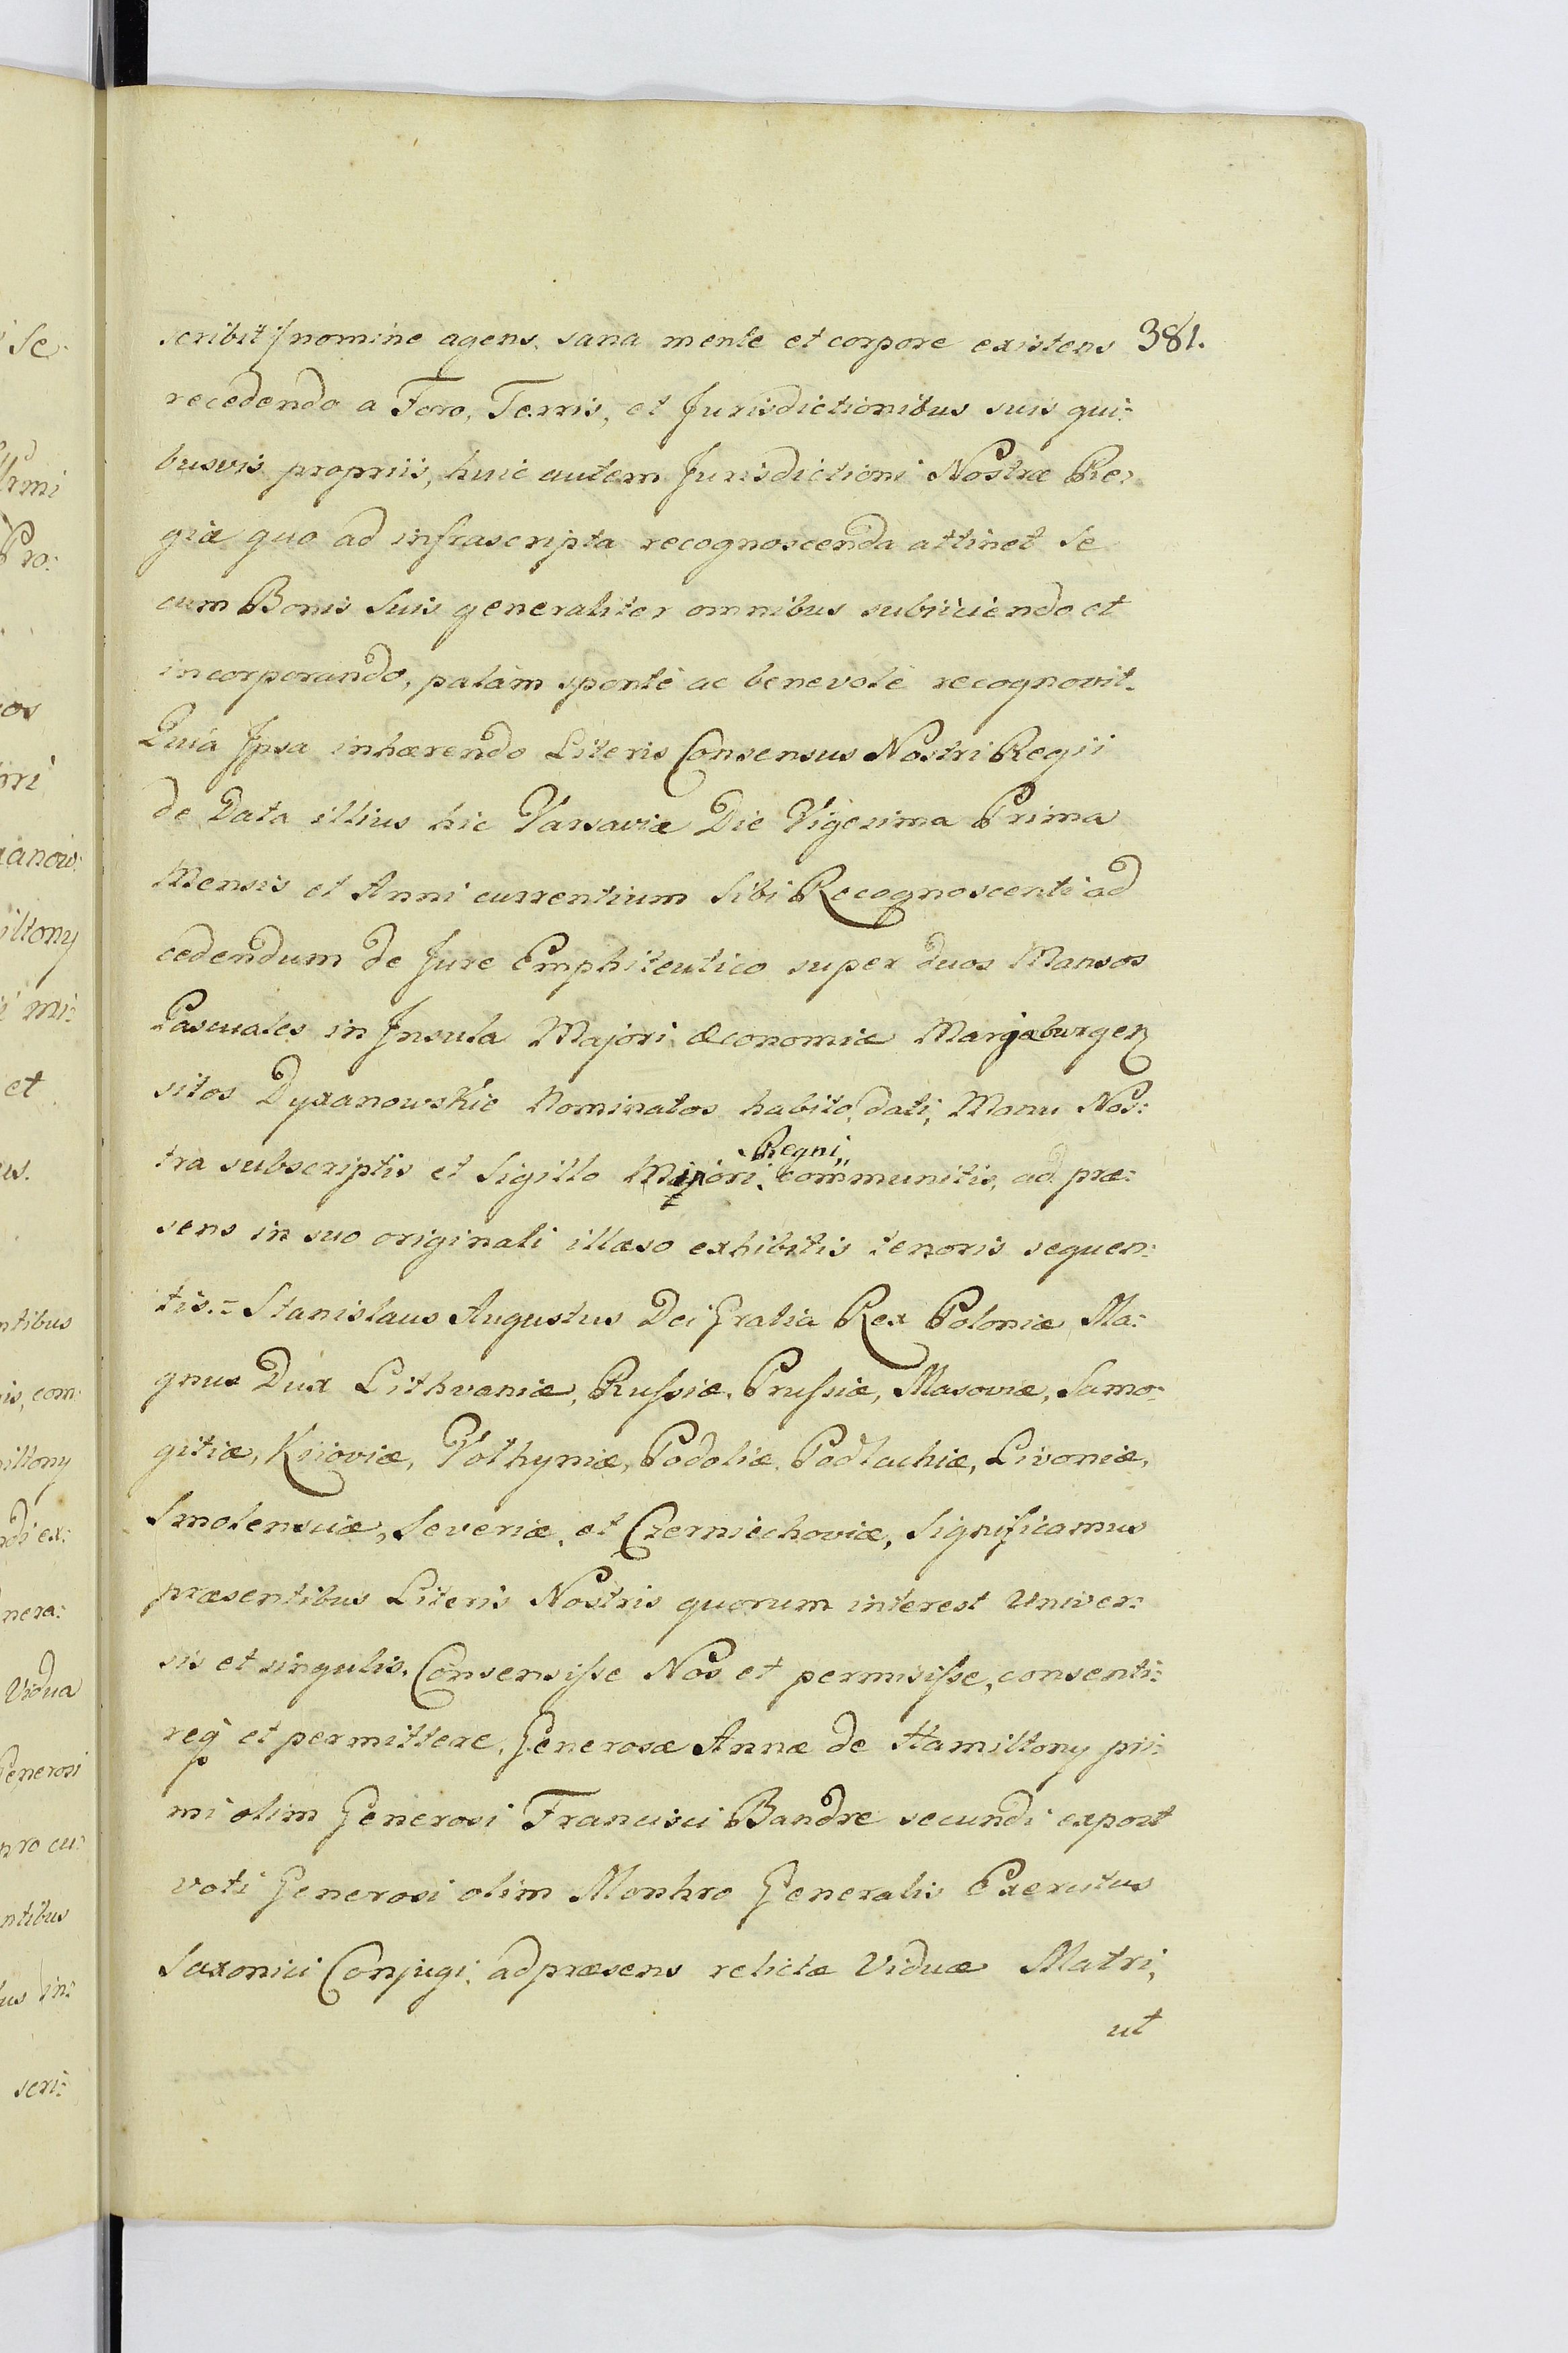 scribit/ nomine agens. sana mente et corpore existens 381.
recedendo a Foro, Terris, et Jurisdictionibus suis qui:
busvis propriis, huic autem Jurisdictioni Nostræ Re:
giæ quo ad infrascripta recognoscenda attinet se
cum Bonis Suis generaliter omnibus subiiciendo et
incorporando, palàm spontè ac benevolè recognovit.
Quia Ipsa inhærendo Literis Consensus Nostri Regii
de Data illius hic Varsaviæ Die Vigesima Prima
Mensis et Anni currentium Sibi Recognoscenti ad
cedendum de Jure Emphiteutico super duos Mansos
Pascuales in Insula Majori Œconomiæ Marjæburgen
sitos Dyxanowskie Nominatos habito, dati, Manu Nos:
tra subscriptis et Sigillo Minori Regni communitis, ad præ:
sens in suo originali illæso exhibitis tenoris sequen:
tis.= Stanislaus Augustus Dei Gratia Rex Poloniæ Ma:
gnus Dux Lithvaniæ, Russiæ, Prussiæ, Masoviæ, Samo:
gitiæ, Kijoviæ, Volhyniæ, Podoliæ, Podlachiæ, Livoniæ,
Smolensciæ, Severiæ, et Czerniechoviæ, Significamus
præsentibus Literis Nostris quorum interest Univer:
sis et singulis. Consensisse Nos et permisisse, consenti:
req et permittere, Generosæ Annæ de Hamiltony pri:
mi olim Generosi Francisci Bandre secundi expost
voti Generosi olim Monhro Generalis Exercitus
Saxonici Conjugi, ad præsens relictæ Viduæ Matri,
ut